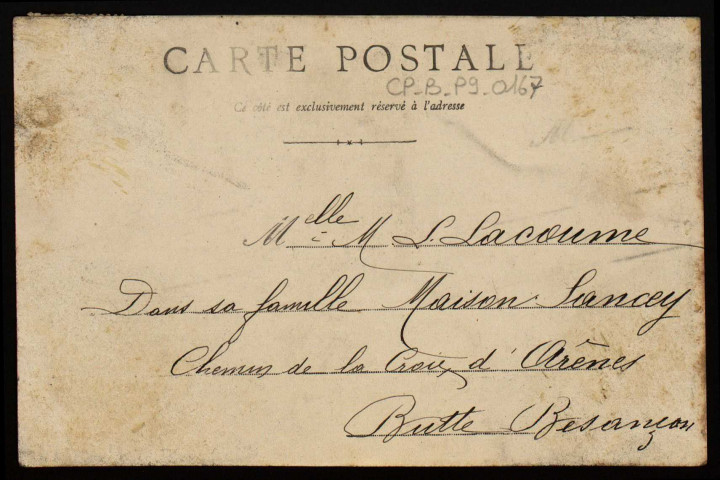 CARTE POSTALE
CP_B_P9_0167
Ce côté est exclusivement réservé à l'adresse
Melle M. L. Lacoume
Dans sa famille Maison Sancey
Chemin de la Croix d'Arênes
Butte Besançon